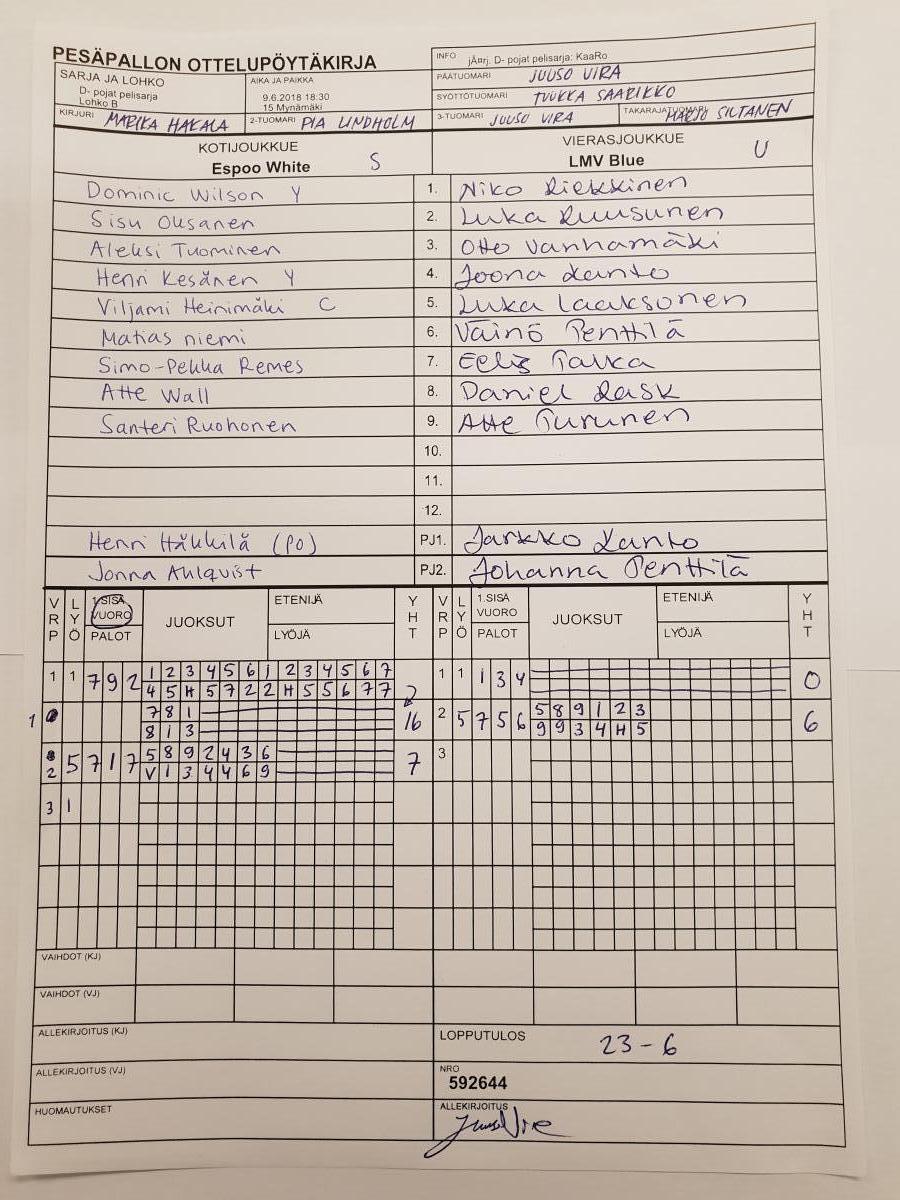 PESÄPALLON OTTELUPÖYTÄKIRJA
INFO jÃ¤rj. D- pojat pelisarja: KaaRo
SARJA JA LOHKO
D- pojat pelisarja
Lohko B
AIKA JA PAIKKA
9.6.2018 18:30
15 Mynämäki
PÄÄTUOMARI JUUSO VIRA
SYÖTTÖTUOMARI TUUKKA SAARIKKO
KIRJURI MARIKA HAKALA
2-TUOMARI PIA LINDHOLM
3-TUOMARI JUUSO VIRA
TAKARAJATUOMARI MARJO SILTANEN
KOTIJOUKKUE
Espoo White S
VIERASJOUKKUE
LMV Blue U
Dominic Wilson Y 1. Niko Riekkinen
Sisu Oksanen 2. Luka Ruusunen
Aleksi Tuominen 3. Otto Vanhamäki
Henri Kesänen Y 4. Joona Lanto
Viljami Heinimäki C 5. Luka Laaksonen
Matias niemi 6. Väinö Penttilä
Simo-Pekka Remes 7. Eelis
Atte Wall 8. Daniel Rask
Santeri Ruohonen 9. Atte Turunen
10.
11.
12.
Henri Häkkilä (PO) PJ1. Jarkko Lanto
Jonna Ahlqvist PJ2. Johanna Penttilä
VRP LYÖ 1.SISÄ VUORO PALOT JUOKSUT ETENIJÄ LYÖJÄ YHT VRP LYÖ 1.SISÄ VUORO PALOT JUOKSUT ETENIJÄ LYÖJÄ YHT
1 1 7 9 2 1 2 3 4 5 6 1 2 3 4 5 6 7 1 1 1 3 4 0
4 5 H 5 7 2 2 H 5 5 6 7 7
1 7 8 1 16 2 5 7 5 6 5 8 9 1 2 3 6
8 1 3 9 9 3 4 H 5
2 5 7 1 7 5 8 9 2 4 3 6 7 3
V 1 3 4 4 6 9
3 1
VAIHDOT (KJ)
VAIHDOT (VJ)
ALLEKIRJOITUS (KJ)
LOPPUTULOS 23 - 6
ALLEKIRJOITUS (VJ)
NRO
592644
HUOMAUTUKSET
ALLEKIRJOITUS